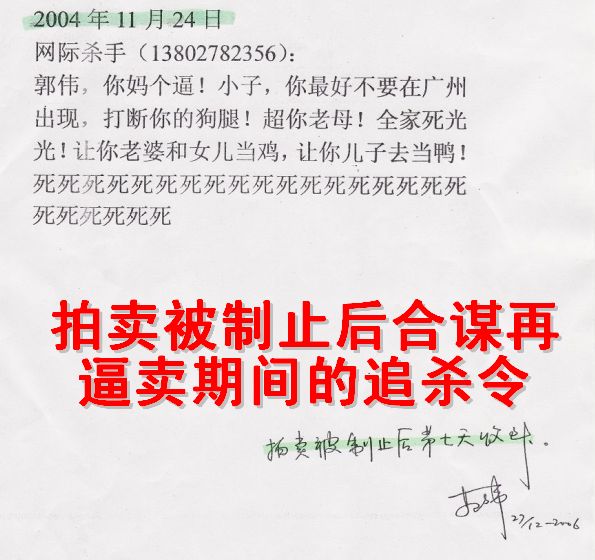 2004 年 11 月 24 日
网际杀手（13802782356）：
郭伟，你妈个逼！小子，你最好不要在广州
出现，打断你的狗腿！超你老母！全家死光
光！让你老婆和女儿当鸡，让你儿子去当鸭！
死死死死死死死死死死死死死死死死死死
死死死死死死
拍卖被制止后合谋再
逼卖期间的追杀令
拍卖被制止后第七天收到。
27/12-2006